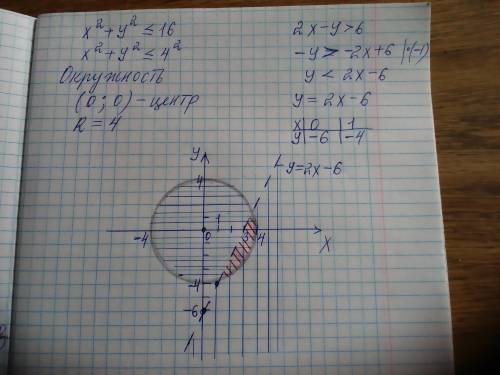 x² + y² ≤ 16
x² + y² ≤ 4²
Окружность
(0; 0) - центр
R = 4
2x - y > 6
-y > -2x + 6 | · (-1)
y < 2x - 6
y = 2x - 6
x | 0 | 1
y | -6 | -4
y = 2x - 6
y
4
1
-4
0
3
4
x
-4
-6